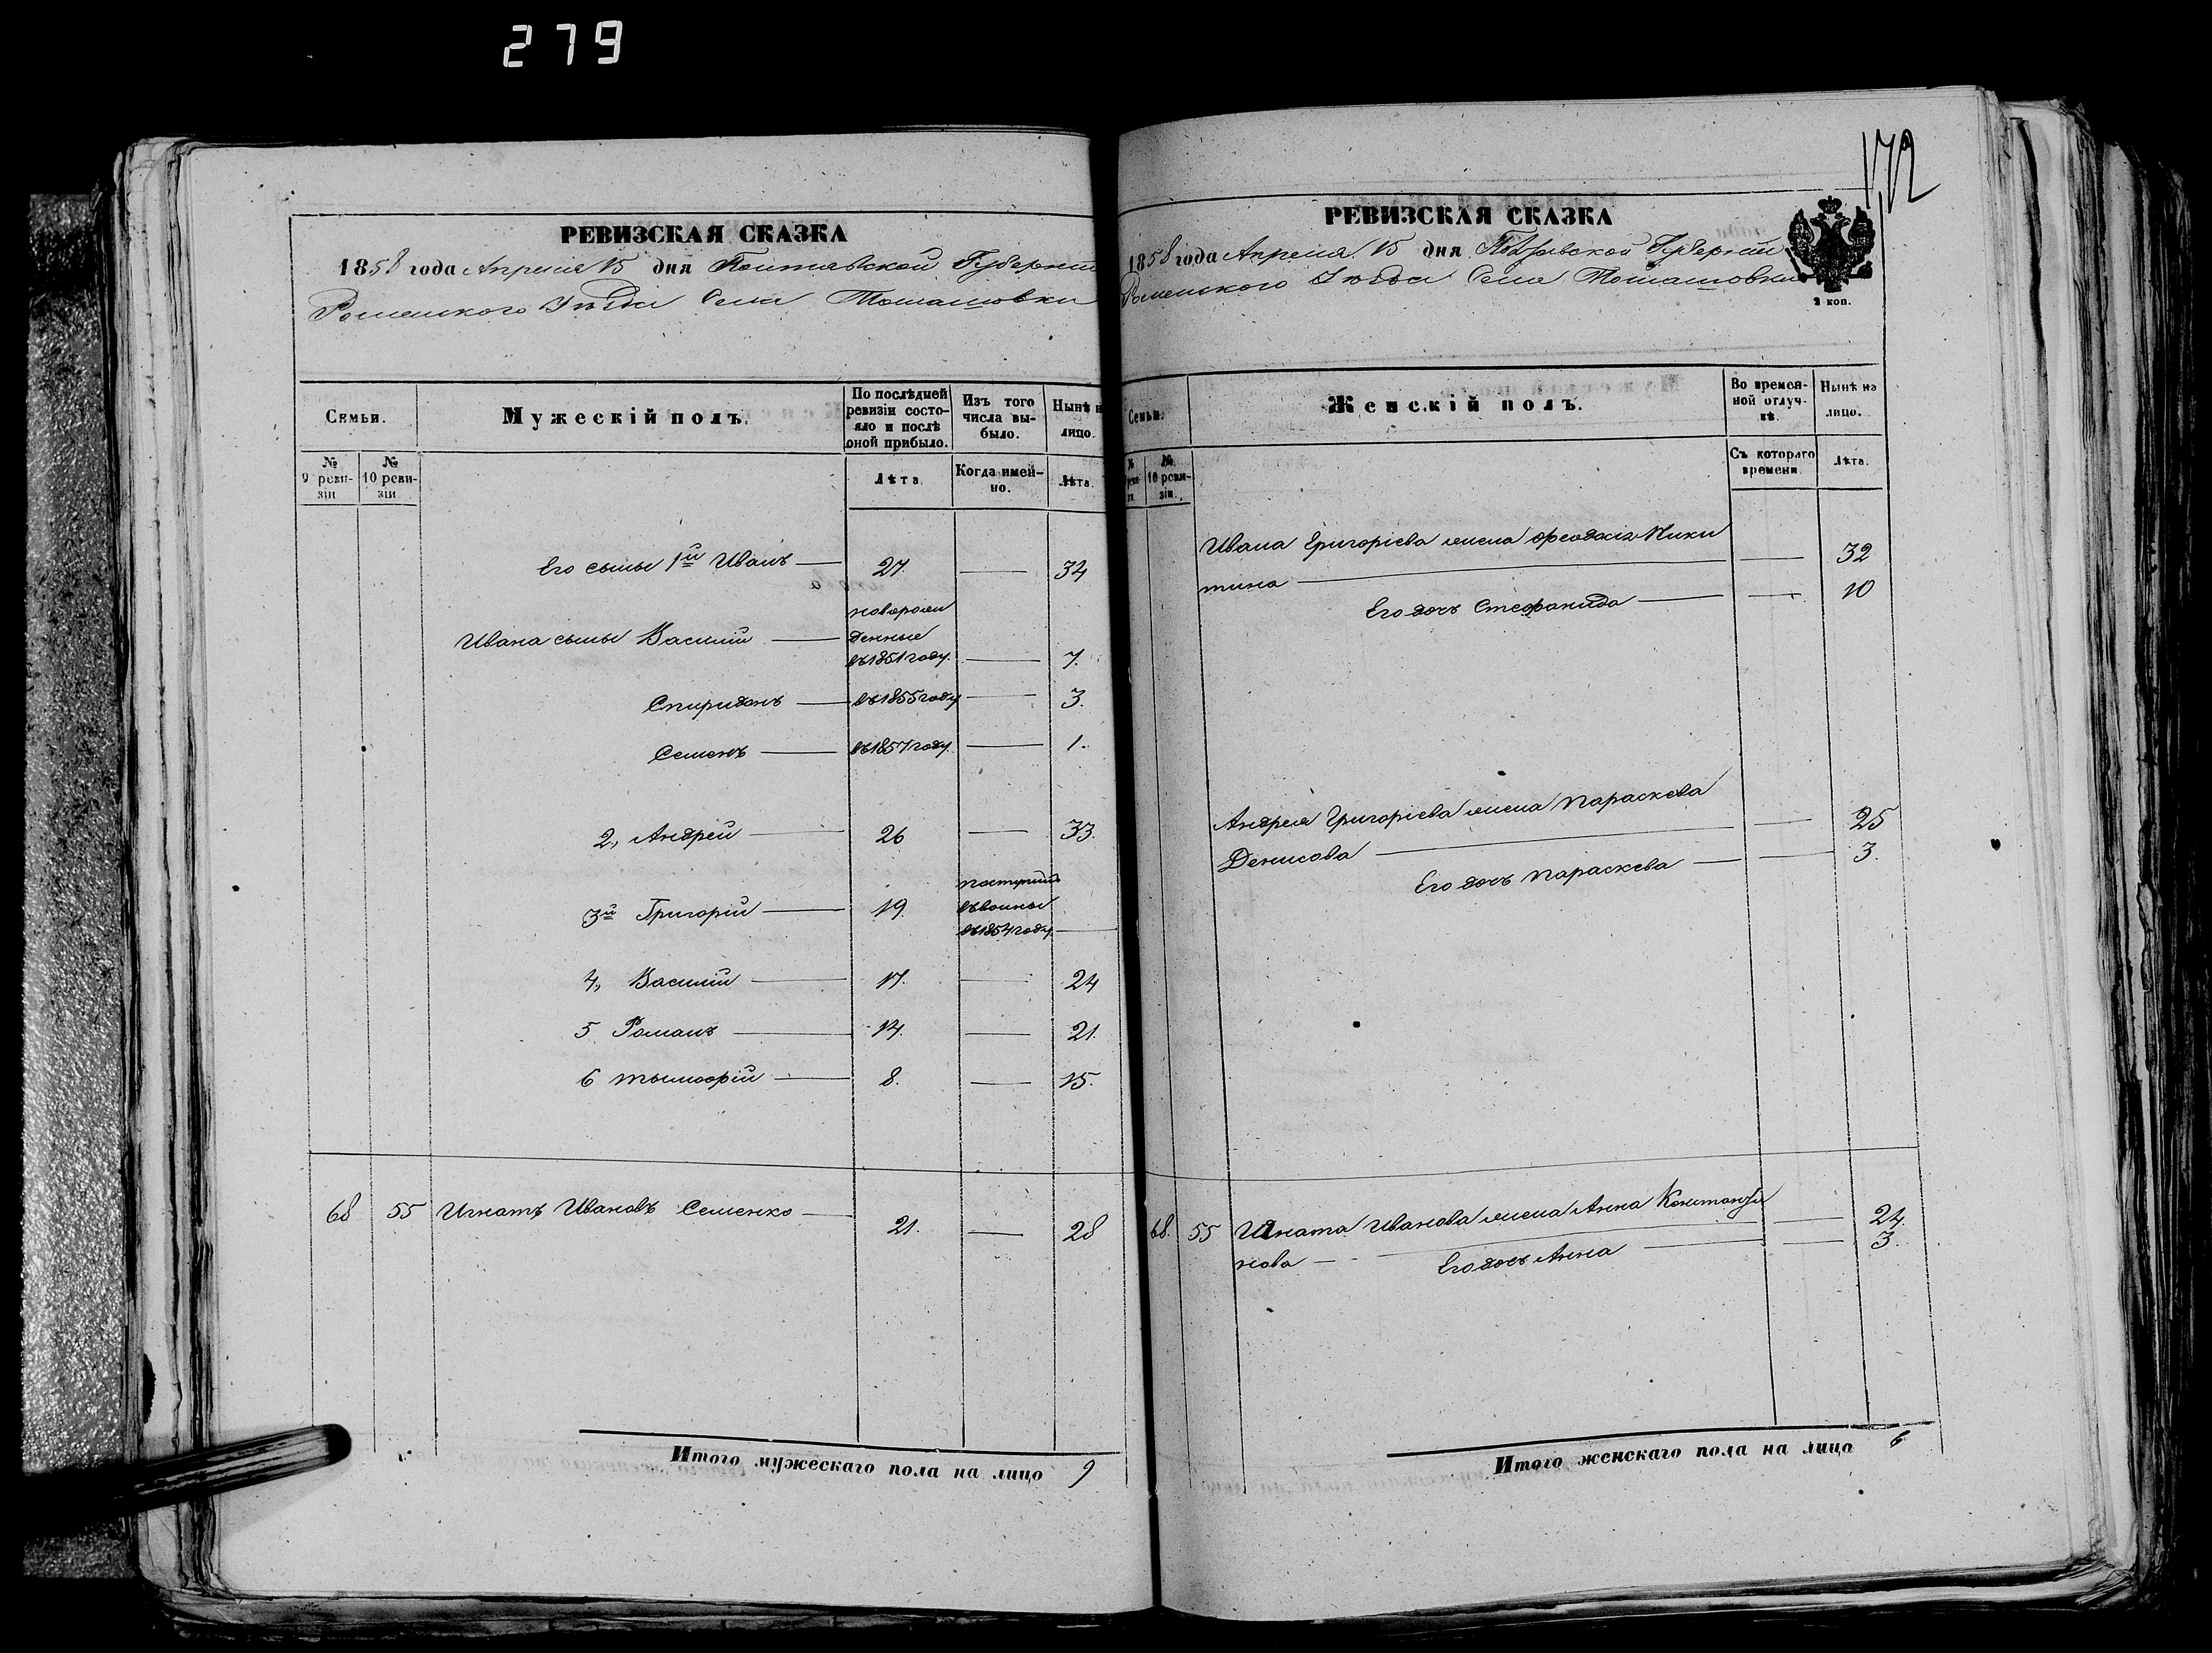 279
172
РЕВИЗСКАЯ СКАЗКА
1858 года Апреля 15 дня Полтавской Губернiи
Роменского Уѣзда Села Томашовки
Семьи.
Мужескiй полъ.
По послѣдней ревизiи состояло и послѣ оной прибыло.
Изъ того числа выбыло.
Нынѣ на лицо.
№ 9 ревизiи
№ 10 ревизiи
Лѣта.
Когда именно.
Лѣта.
Его сыны 1й Иванъ — 27. — 34
Ивана сыны Василiй — новорожденные въ 1851 году. — 7.
Спиридонъ — въ 1855 году — 3.
Семенъ — въ 1857 году. — 1.
2., Андрей — 26 — 33.
3й Григорiй — 19. поступилъ въ воины въ 1854 году. —
4., Василiй — 17. — 24
5 Романъ — 14. — 21.
6 Тымофiй — 8. — 15.
68 55 Игнатъ Ивановъ Семенко — 21. — 28
Итого мужескаго пола на лицо 9
РЕВИЗСКАЯ СКАЗКА
1858 года Апреля 15 дня Полтавской Губернiи
Роменского Уѣзда Села Томашовки
2 коп.
Семьи.
Женскiй полъ.
Во временной отлучкѣ.
Нынѣ на лицо.
№ 10 ревизiи.
Съ котораго времени.
Лѣта.
Ивана Григорiева жена Феодосiя Ники
тина — — 32
Его дочь Стефанида — — 10
Андрея Григорiева жена Параскева
Денисова — — 25
Его дочь Параскева — — 3.
68. 55 Игната Иванова жена Анна Константи
нова — — 24.
Его дочь Анна — — 3.
Итого женскаго пола на лицо 6